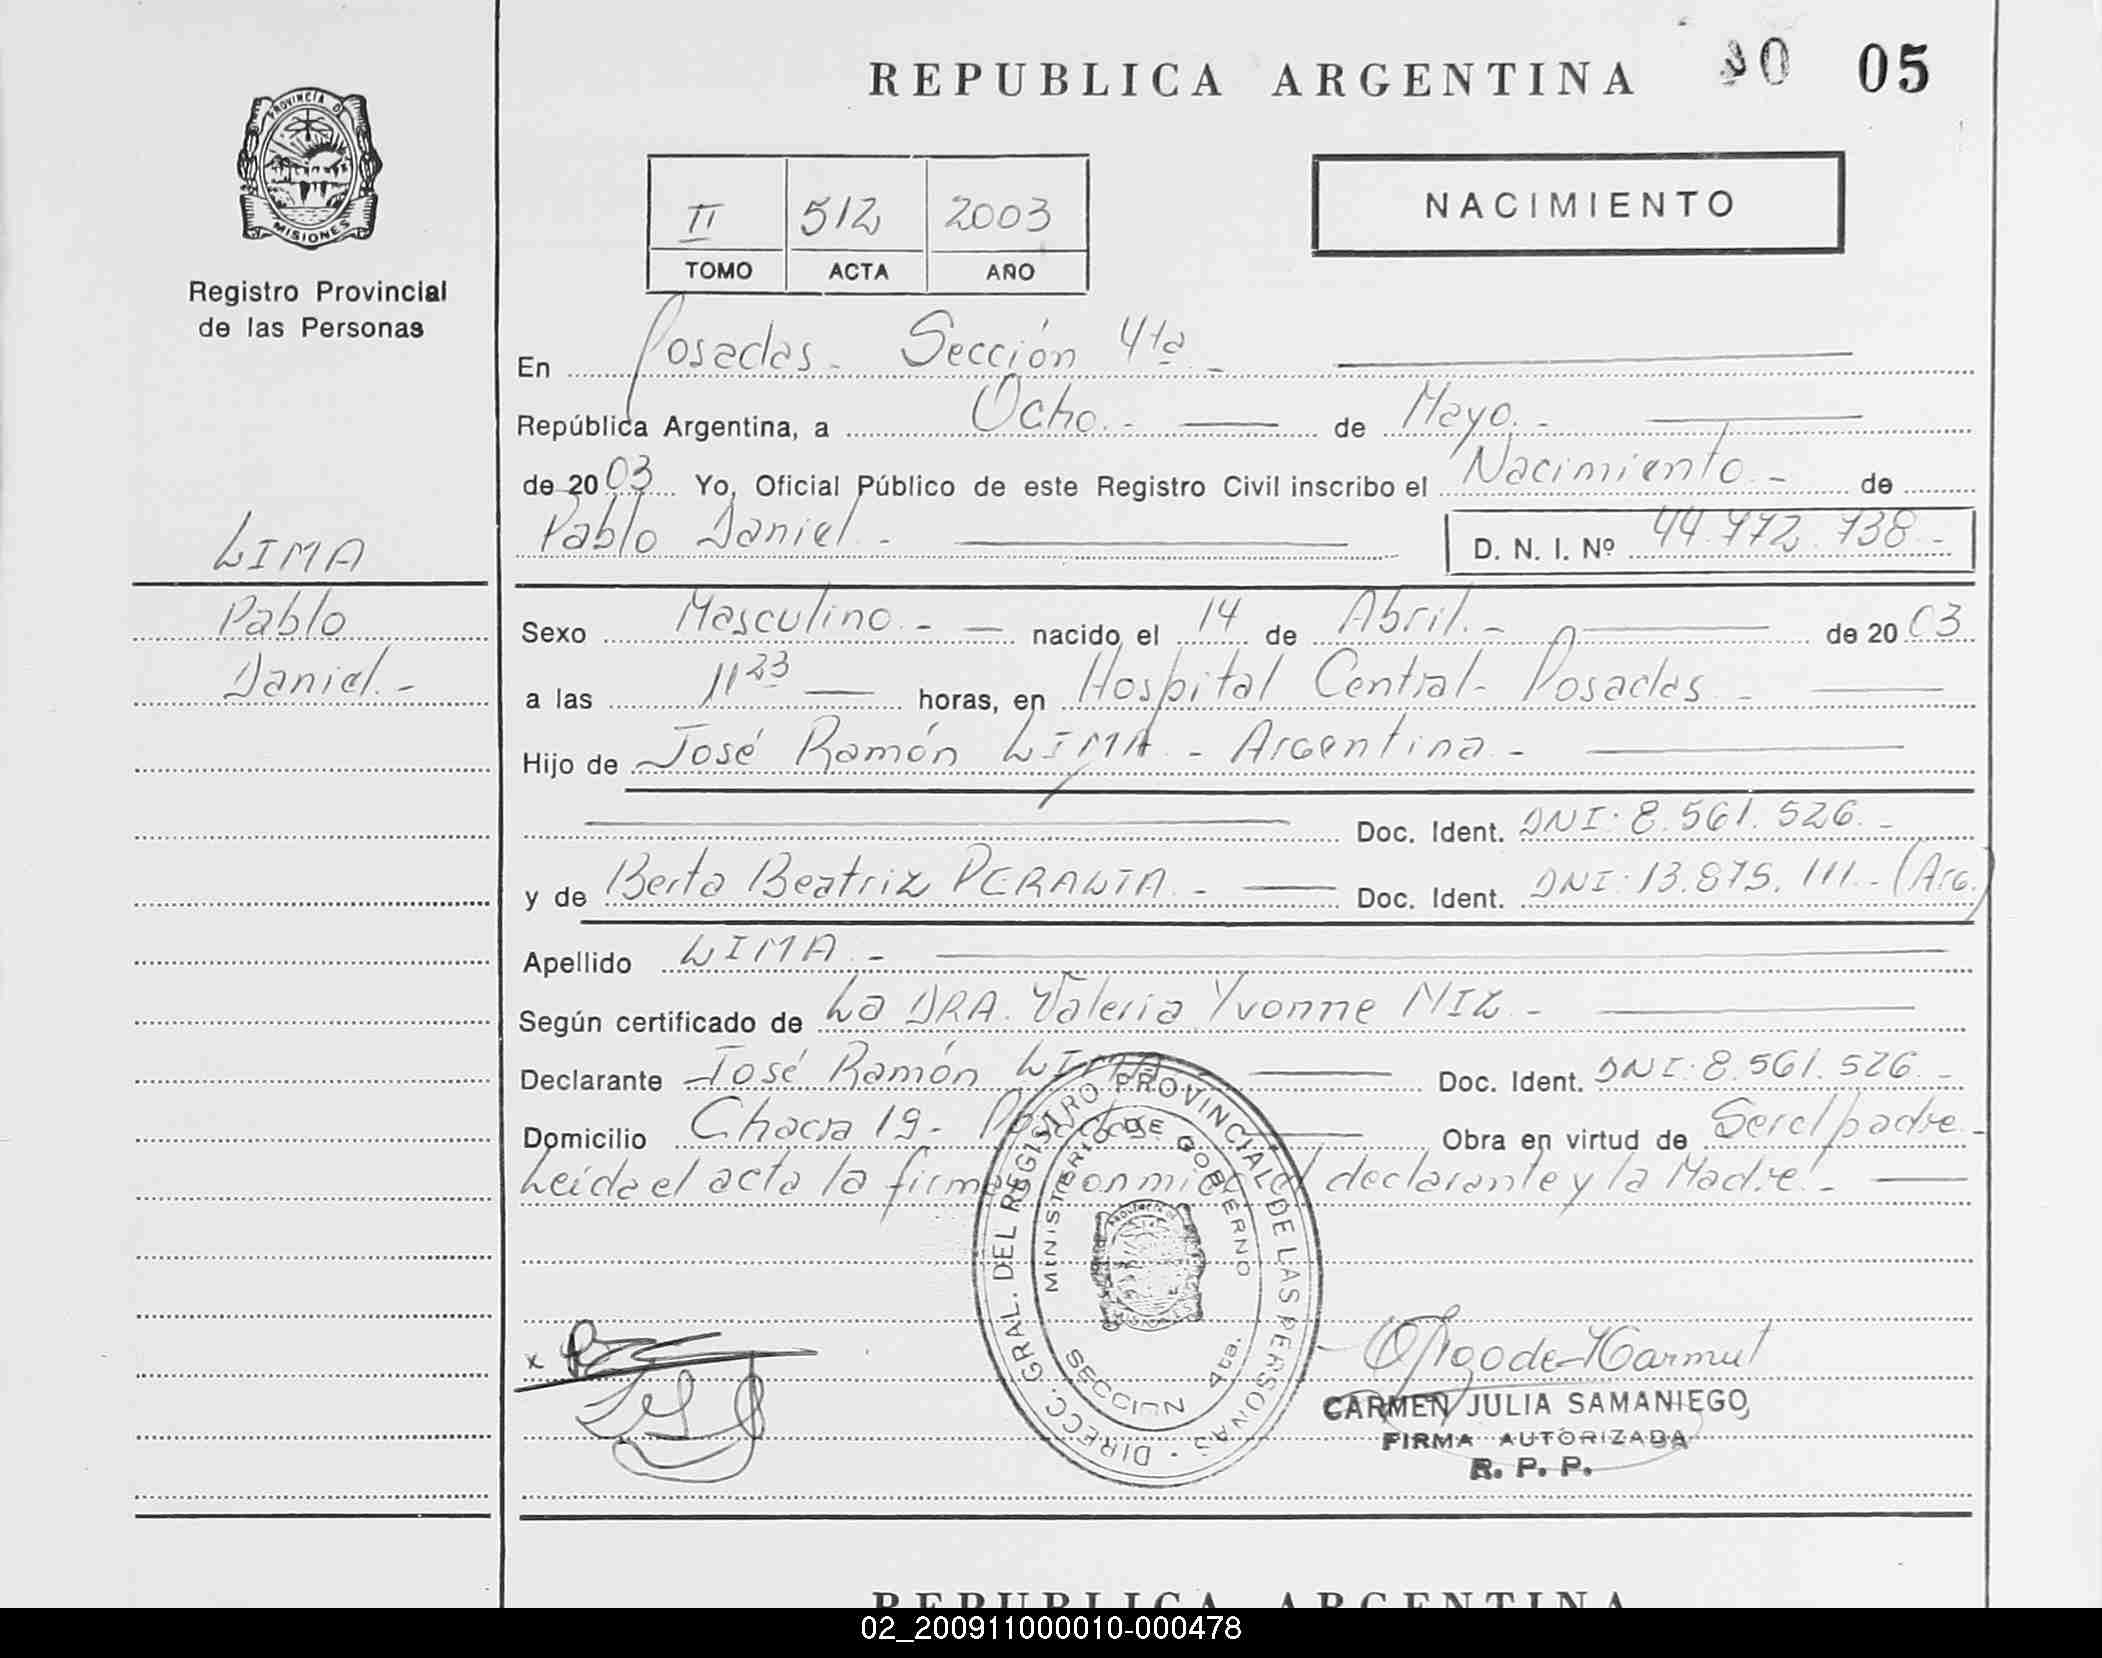 REPUBLICA ARGENTINA 05
PROVINCIA DE
MISIONES
Registro Provincial
de las Personas
II 512 2003
TOMO ACTA AÑO
NACIMIENTO
En Posadas - Sección 4ta -
República Argentina, a Ocho.- de Mayo.-
de 2003 Yo, Oficial Público de este Registro Civil inscribo el Nacimiento - de
Pablo Daniel.- D. N. I. Nº 44.772.738-
LIMA
Pablo
Daniel.-
Sexo Masculino.- nacido el 14 de Abril.- de 2003
a las 11 23 horas, en Hospital Central - Posadas -
Hijo de José Ramón LIMA - Argentina -
Doc. Ident. DNI: 8.561.526.-
y de Berta Beatriz PERALTA - Doc. Ident. DNI: 13.875.111.- (Arg.)
Apellido LIMA.-
Según certificado de La DRA. Valeria Yvonne MIZ.-
Declarante José Ramón LIMA Doc. Ident. DNI: 8.561.526.-
Domicilio Chacra 19- Posadas Obra en virtud de Ser el padre -
Leída el acta la firman conmigo el declarante y la Madre.-
DIRECC. GRAL. DEL REGISTRO PROVINCIAL DE LAS PERSONAS -
MINISTERIO DE GOBIERNO
SECCION 4ta.
x
CARMEN JULIA SAMANIEGO
FIRMA AUTORIZADA
R. P. P.
REPUBLICA ARGENTINA
02_200911000010-000478